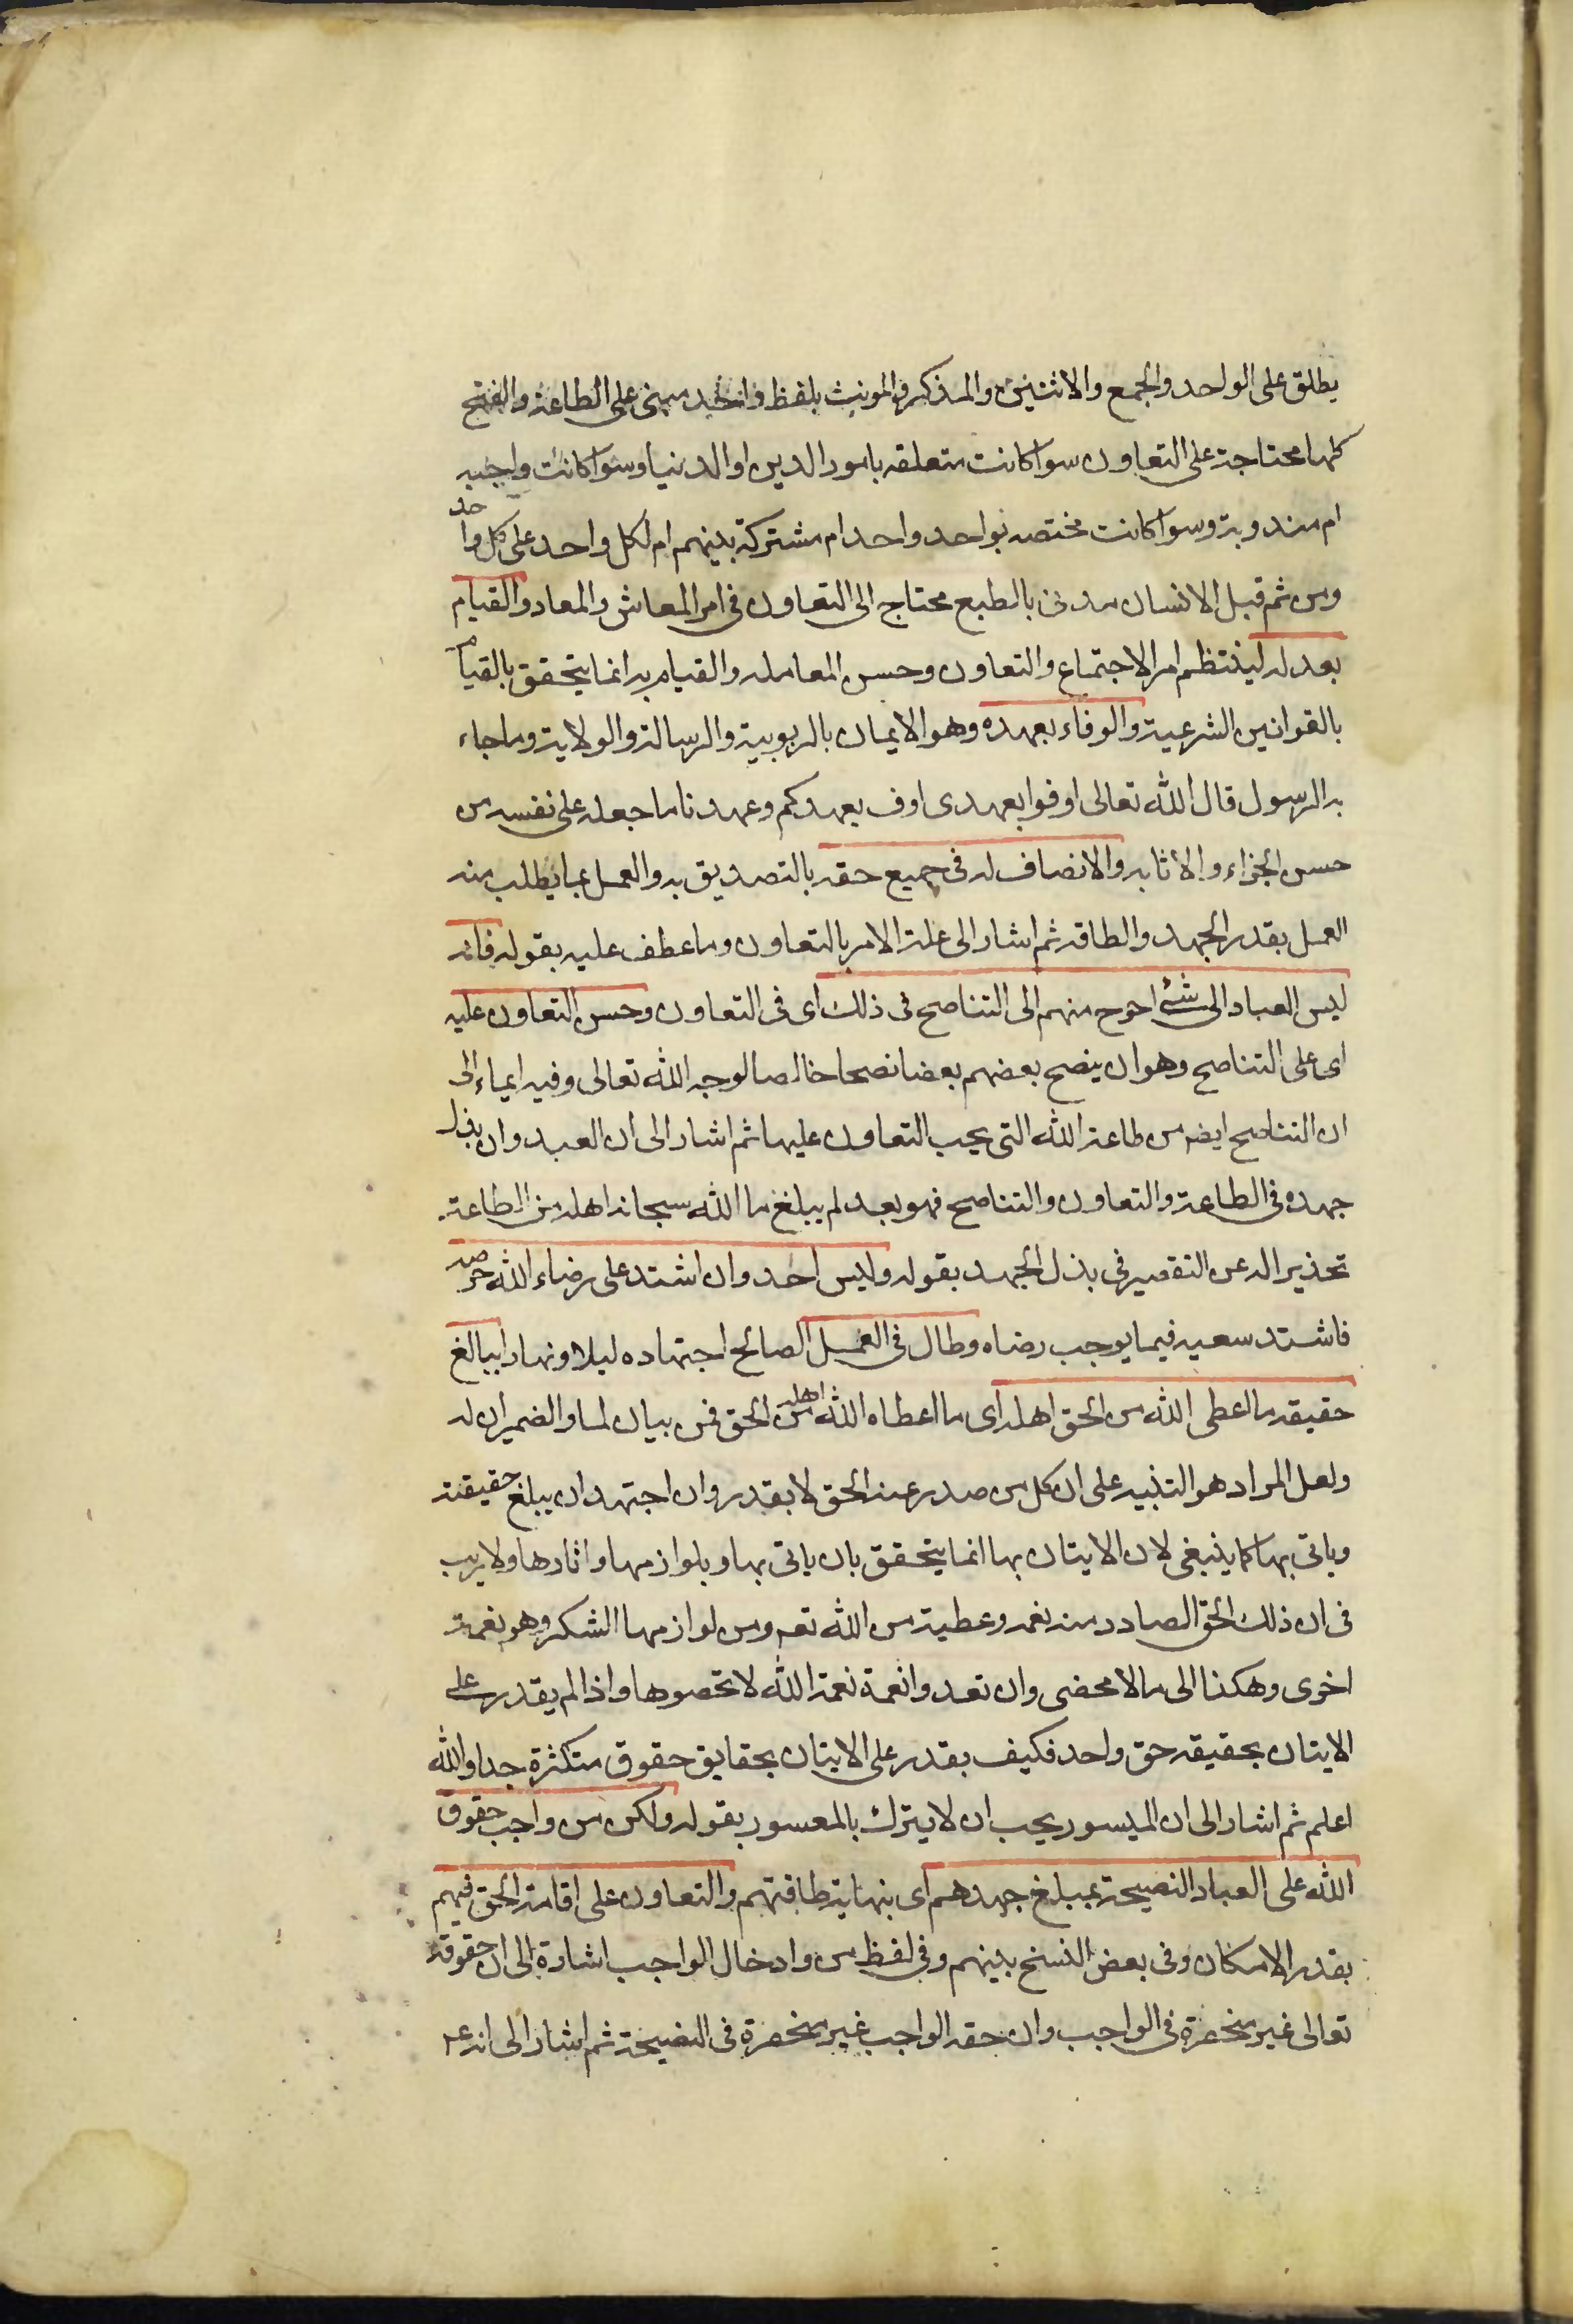 يطلق على الواحد والجمع والاثنين والمذكر والمونث بلفظ واحد مبنى على الطاعة والفتح
كلها محتاجة على التعاون سوا كانت متعلقه بامور الدين او الدنيا وسوا كانت واجبه
ام مندوبة وسوا كانت مختصه بواحد واحد ام مشتركة بينهم ام لكل واحد على كل واحد
ومن ثم قيل الانسان مدنى بالطبع محتاج الى التعاون فى امر المعاش والمعاد والقيام
بعدله لينتظم امر الاجتماع والتعاون وحسن المعامله والقيام به انما يتحقق بالقيام
بالقوانين الشرعية والوفاء بعهده وهو الايمان بالربوبية والرسالة والولاية وما جاء
به الرسول قال الله تعالى اوفوا بعهدى اوف بعهدكم وعهدنا ما جعله على نفسه من
حسن الجزاء والاثابه والانصاف له فى جميع حقه بالتصديق به والعمل بما يطلب منه
العمل بقدر الجهد والطاقه ثم اشار الى علة الامر بالتعاون وما عطف عليه بقوله فانه
ليس العباد الى شئ احوج منهم الى التناصح فى ذلك اى فى التعاون وحسن التعاون عليه
اى على التناصح وهو ان ينصح بعضهم بعضا نصحا خالصا لوجه الله تعالى وفيه ايماء الى
ان التناصح ايضم من طاعة الله التى يجب التعاون عليها ثم اشار الى ان العبد وان بذل
جهده فى الطاعة والتعاون والتناصح فهو بعد لم يبلغ ما الله سبحانه اهله من الطاعة
تحذيرا له عن التقصير فى بذل الجهد بقوله وليس احد وان اشتد على رضاء الله حرصه
فاشتد سعيه فيما يوجب رضاه وطال فى العمل الصالح اجتهاده ليلا ونهارا ببالغ
حقيقه ما اعطى الله من الحق اهله اى ما اعطاه الله اهله من الحق فمن بيان لما والضميران له
ولعل المراد هو التنبيه على ان كل من صدر عنه الحق لا يقدر وان اجتهد ان يبلغ حقيقته
وياتى بها كما ينبغى لان الايتان بها انما يتحقق بان ياتى بها وبلوازمها واثارها ولا ريب
فى ان ذلك الحق الصادر منه نعمه وعطية من الله تعم ومن لوازمها الشكر وهو نعمة
اخرى وهكذا الى ما لا محضى وان تعدوا نعمة نعمة الله لا تحصوها واذا لم يقدر على
الايتان بحقيقه حق واحد فكيف يقدر على الايتان بحقايق حقوق متكثرة جدا والله
اعلم ثم اشار الى ان الميسور يجب ان لا يترك بالمعسور بقوله ولكن من واجب حقوق
الله على العباد النصيحة بمبلغ جهدهم اى بنهاية طاقتهم والتعاون على اقامة الحق فيهم
بقدر الامكان وفى بعض النسخ بينهم وفى لفظ من وادخال الواجب اشارة الى ان حقوقه
تعالى غير منحصرة فى الواجب وان حقه الواجب غير منحصرة فى النصيحة ثم اشار الى انه